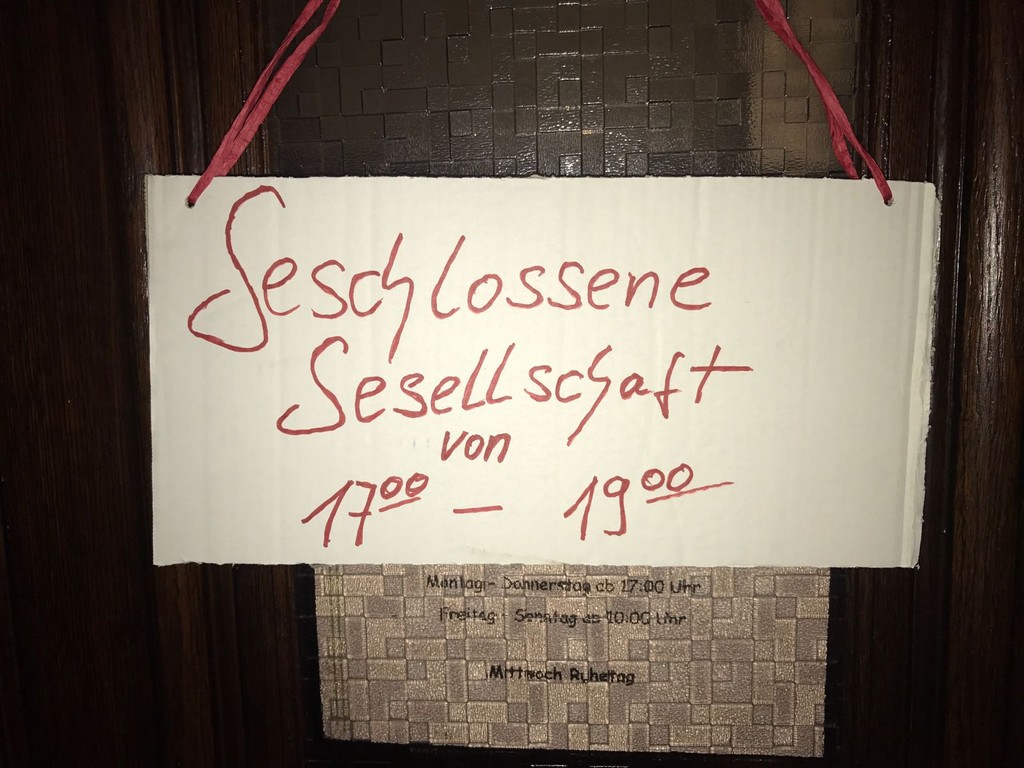 Geschlossene
Gesellschaft
von
17⁰⁰ – 19⁰⁰
Montag - Donnerstag ab 17:00 Uhr
Freitag - Sonntag ab 10:00 Uhr
Mittwoch Ruhetag